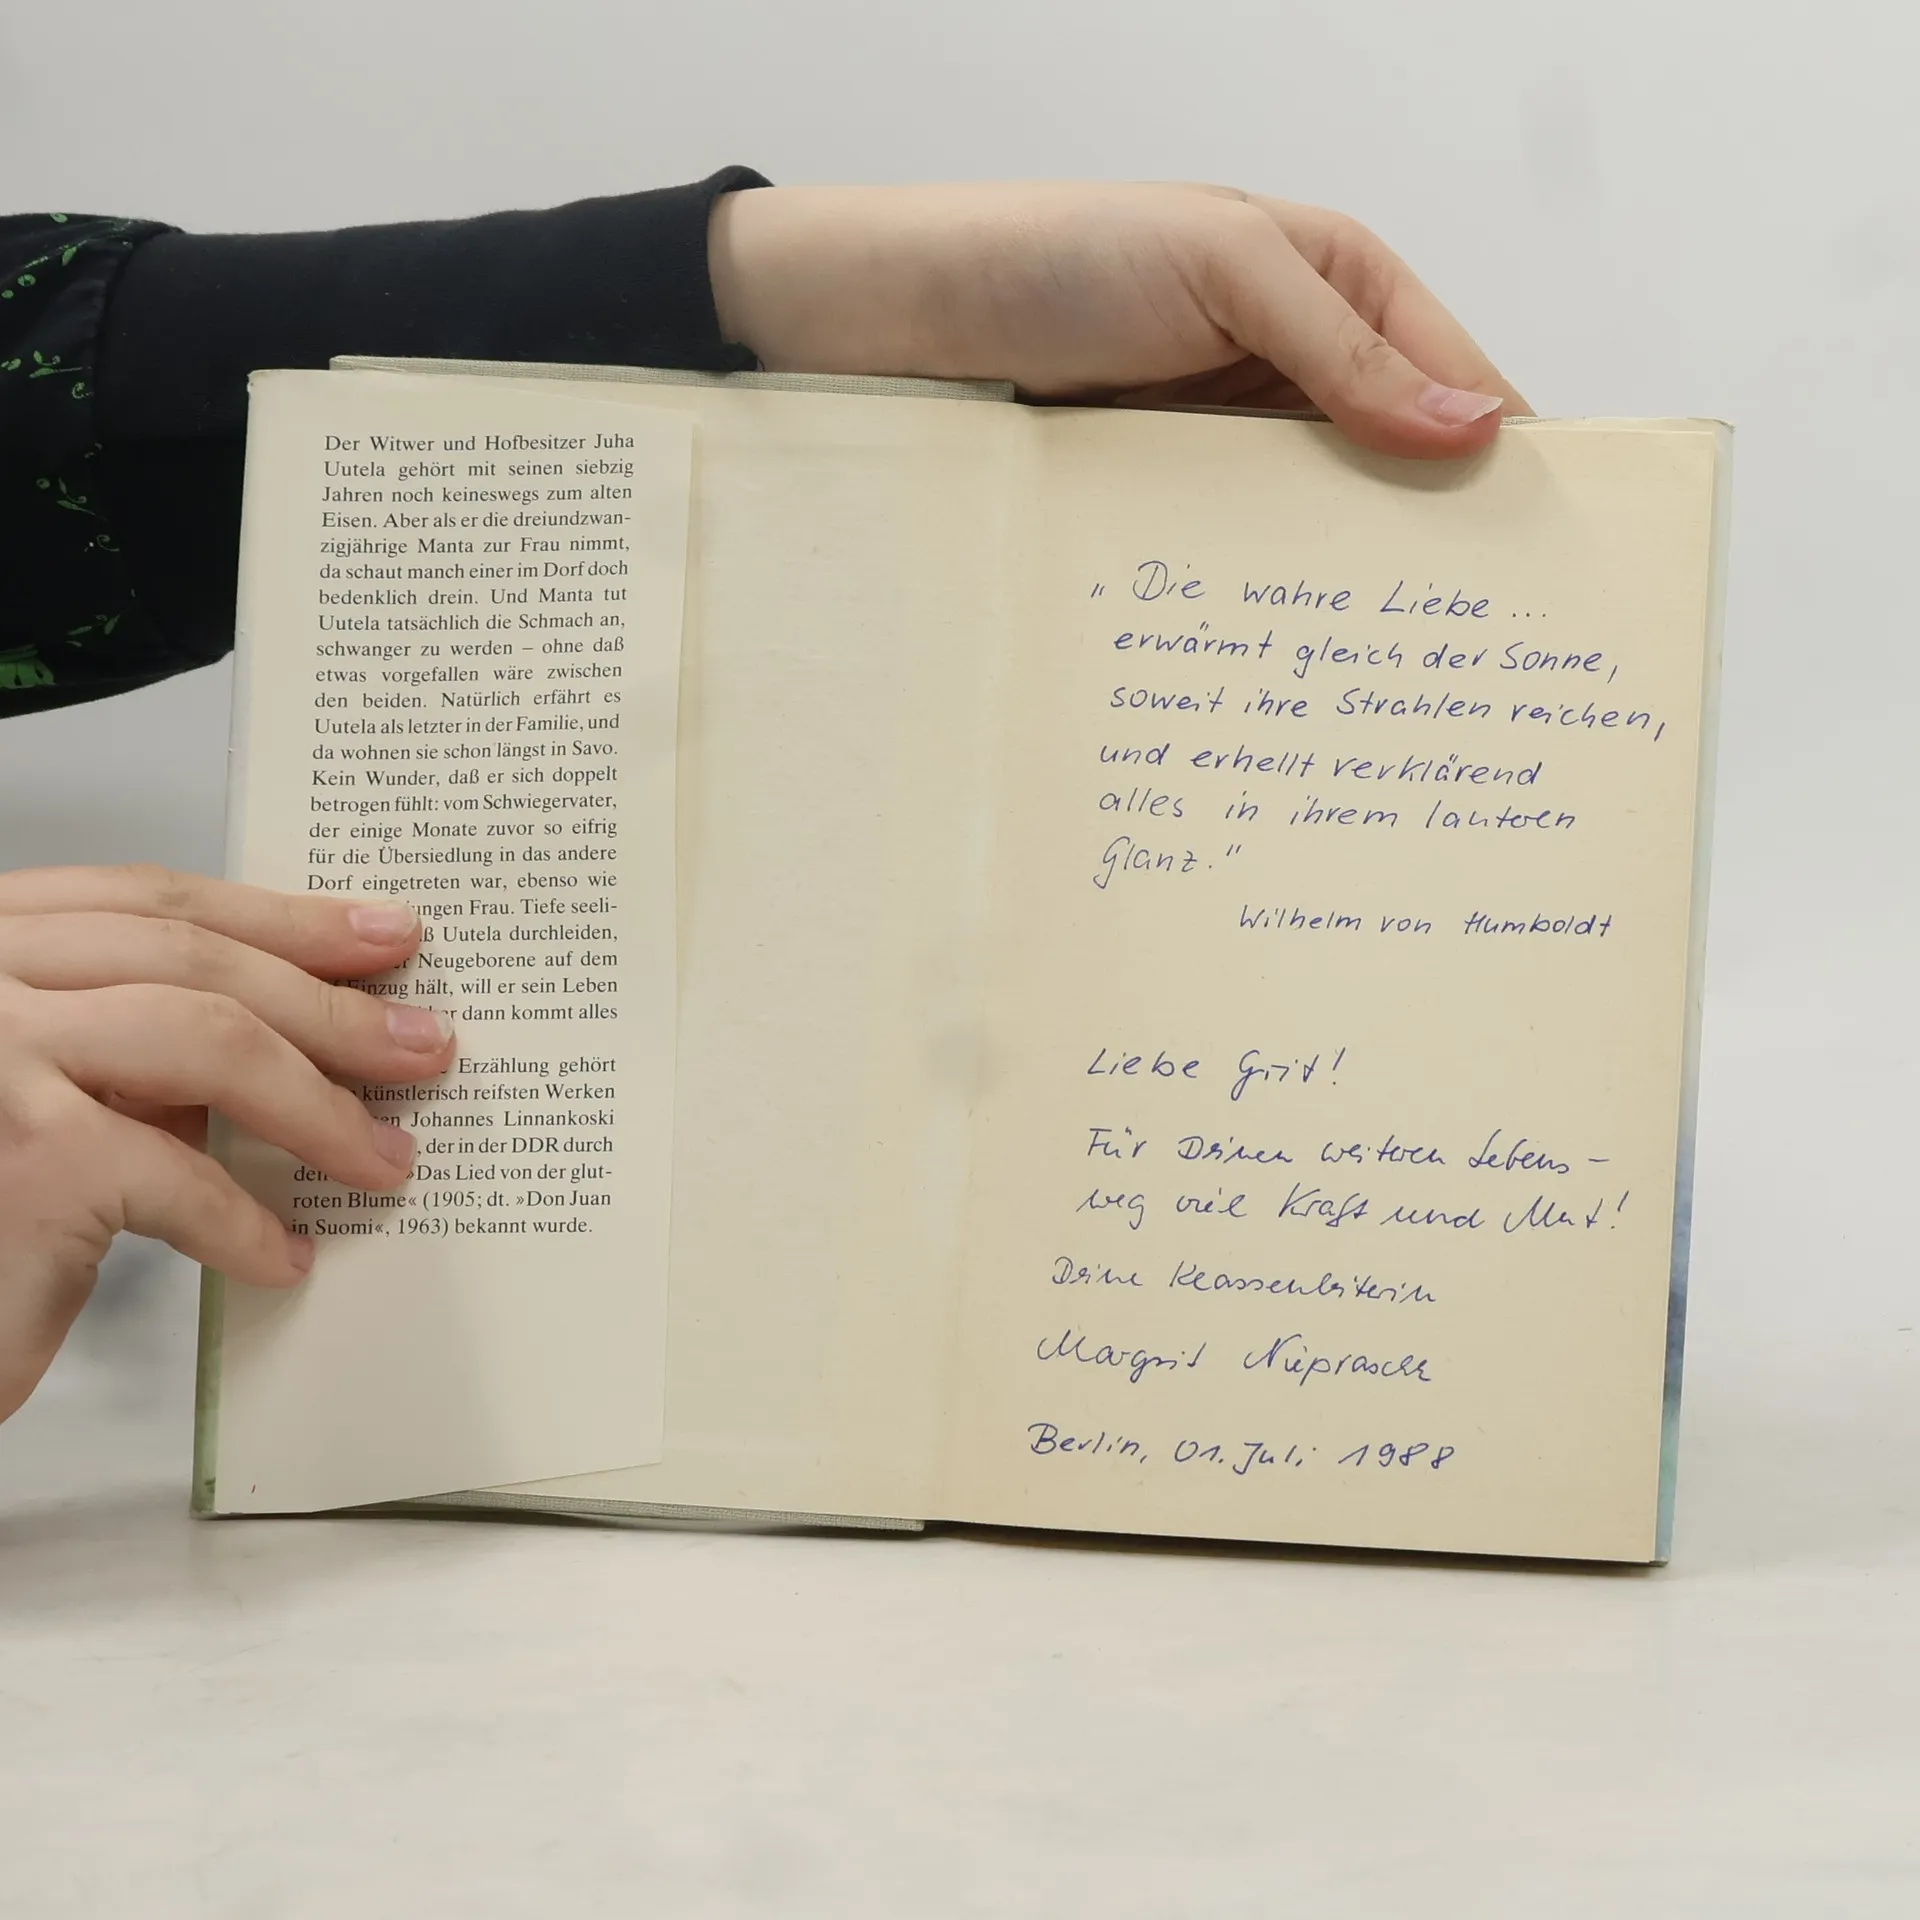 Der Witwer und Hofbesitzer Juha
Uutela gehört mit seinen siebzig
Jahren noch keineswegs zum alten
Eisen. Aber als er die dreiundzwan-
zigjährige Manta zur Frau nimmt,
da schaut manch einer im Dorf doch
bedenklich drein. Und Manta tut
Uutela tatsächlich die Schmach an,
schwanger zu werden – ohne daß
etwas vorgefallen wäre zwischen
den beiden. Natürlich erfährt es
Uutela als letzter in der Familie, und
da wohnen sie schon längst in Savo.
Kein Wunder, daß er sich doppelt
betrogen fühlt: vom Schwiegervater,
der einige Monate zuvor so eifrig
für die Übersiedlung in das andere
Dorf eingetreten war, ebenso wie
Frau. Tiefe seeli-
Uutela durchleiden,
Neugeborene auf dem
Einzug hält, will er sein Leben
dann kommt alles
Erzählung gehört
künstlerisch reifsten Werken
Johannes Linnankoski
, der in der DDR durch
den »Das Lied von der glut-
roten Blume« (1905; dt. »Don Juan
in Suomi«, 1963) bekannt wurde.
„Die wahre Liebe ...
erwärmt gleich der Sonne,
soweit ihre Strahlen reichen,
und erhellt verklärend
alles in ihrem lauteren
Glanz."
Wilhelm von Humboldt
Liebe Grit!
Für Deinen weiteren Lebens-
weg viel Kraft und Mut!
Deine Klassenleiterin
Margrit
Berlin, 01. Juli 1988